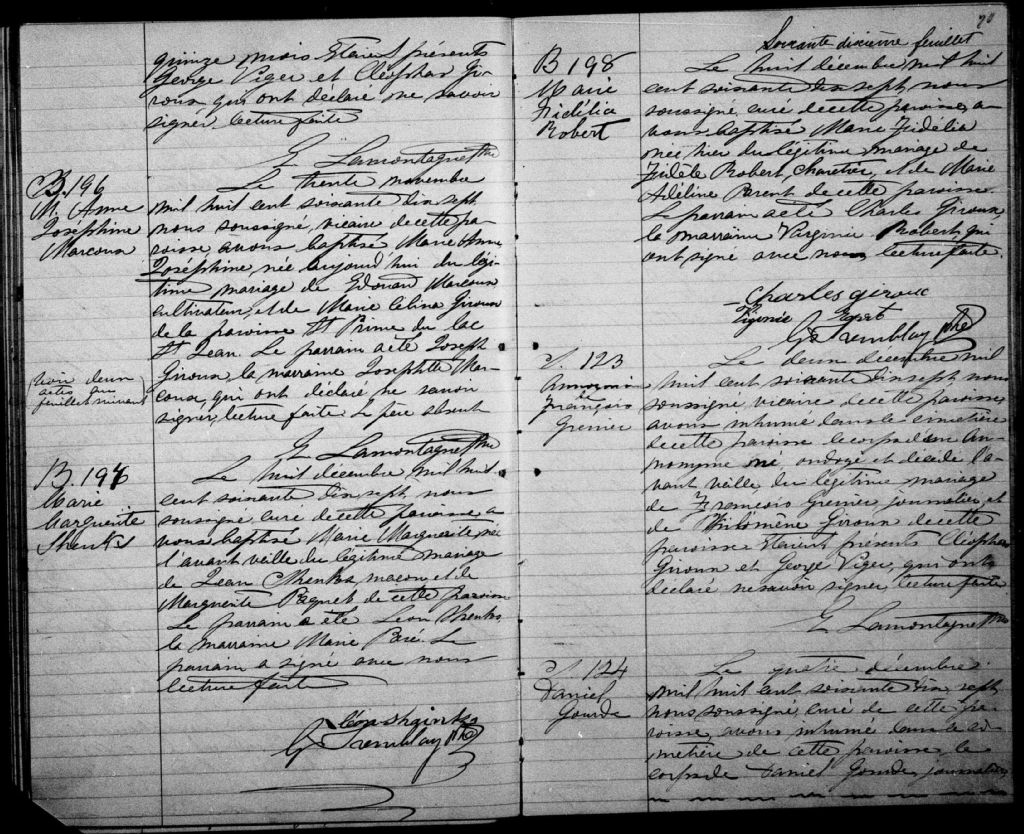 quinze mois Etaient présents
George Viger et Cléophas Gi-
roux qui ont déclaré ne savoir
signer lecture faite
G Lamontagne Ptre
B. 196
M. Anne
Josephine
Marcoux
Le trente novembre
mil huit cent soixante dix sept
nous soussigné, vicaire de cette pa-
roisse avons baptisé Marie Anne
Joséphine, née aujourd'hui du légi-
time mariage de Edouard Marcoux
cultivateur, et de Marie Celina Giroux
de la paroisse St Prime du lac
St Jean. Le parrain a été Joseph
Giroux la marraine Josephtte Mar-
coux, qui ont déclaré ne savoir
signer, lecture faite Le père absent
voir deux
actes au
feuillet suivant
G Lamontagne Ptre
B. 197
Marie
Marguerite
Shenks
Le huit décembre mil huit
cent soixante dix sept, nous
soussigné, curé de cette paroisse, a-
vons baptisé Marie Marguerite, née
l'avant veille du légitime mariage
de Jean Shenks maçon, et de
Marguerite Paquet de cette paroisse
Le parrain a été Léon Shenks
la marraine Marie Paré. Le
parrain a signé avec nous
lecture faite
Léon
G Tremblay Ptre
70
Soixante dixième feuillet
B 198
Marie
Fidélia
Robert
Le huit décembre mil huit
cent soixante dix sept, nous
soussigné curé de cette paroisse, a-
vons baptisé Marie Fidélia
née hier du légitime mariage de
Fidèle Robert, charetier, et de Marie
Adéline Parent de cette paroisse
Le parrain a été Charles Giroux
la marraine Virginie Robert, qui
ont signé avec nous lecture faite.
Charles giroux
G Tremblay Ptre
S. 123
Anonyme
de
François
Grenier
Le deux decembre mil
huit cent soixante dix sept nous
soussigné, vicaire de cette paroisse,
avons inhumé dans le cimetière
de cette paroisse le corps d'un An-
nonyme né, ondoyé et décédé l'a-
vant veille, du légitime mariage
de François Grenier, journalier, et
de Philomène Giroux de cette
paroisse Etaient présents Cléophas
Giroux et George Viger, qui ont
déclaré ne savoir signer, lecture faite
G Lamontagne Ptre
S. 124
Daniel
Gourde
Le quatre décembre
mil huit cent soixante dix sept
nous soussigné, curé de cette pa-
roisse, avons inhumé dans le ci-
metière de cette paroisse, le
corps de Daniel Gourde, journalier,